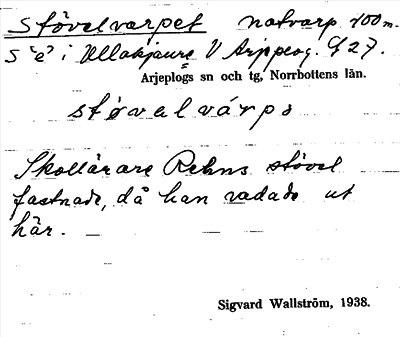 Stövelvarpet notvarp 400 m.
S "e" i Ullakjaure V Arjeplog. G 27.
Arjeplogs sn och tg, Norrbottens län.
støvelvárpə
Skollärare Rehns stövel
fastnade, då han vadade ut
här.
Sigvard Wallström, 1938.